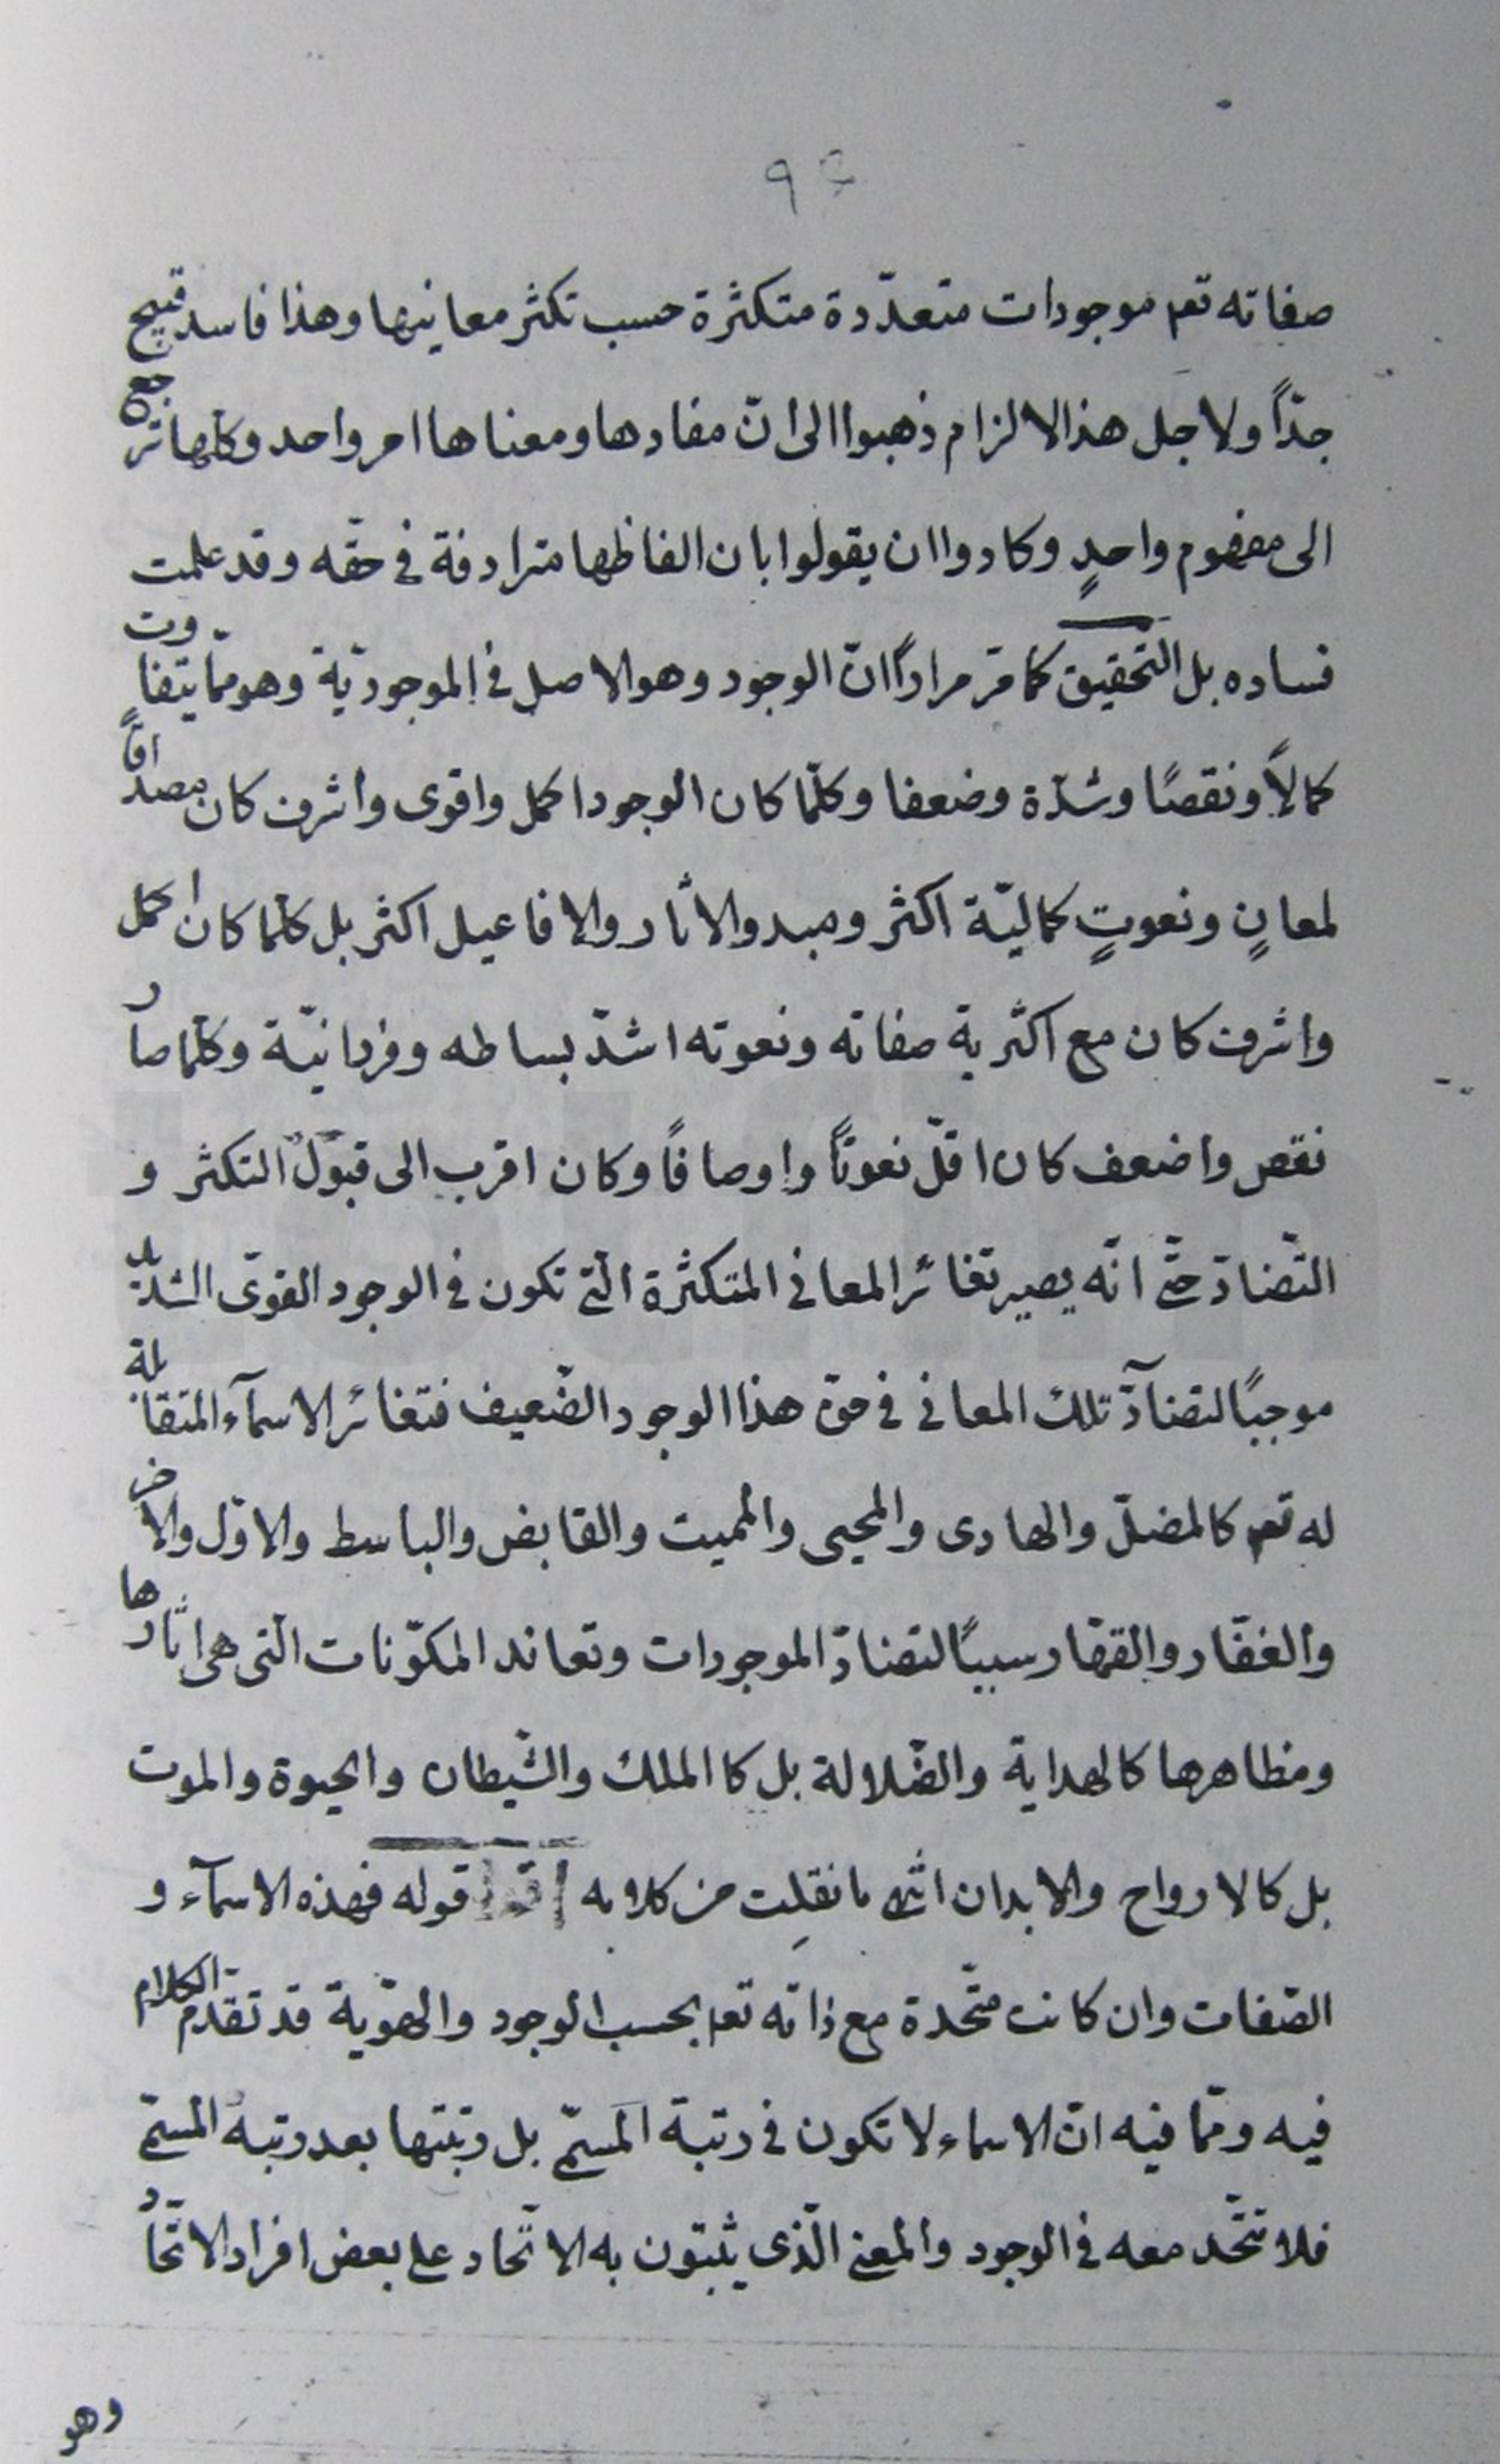 ٩٤
صفاته تعم موجودات متعدّدة متكثرة حسب تكثر معانيها وهذا فاسد قبيح
جدّاً ولاجل هذا الالزام ذهبوا الى انّ مفادها ومعناها امر واحد وكلها ترجع
الى مفهوم واحدٍ وكادوا ان يقولوا بان الفاظها مترادفة فى حقّه وقد علمت
فساده بل التحقيق كما مرّ مراراً انّ الوجود وهو الاصل فى الموجوديّة وهو ممّا يتفاوت
كمالاً ونقصًا وشدّة وضعفا وكلّما كان الوجود اكمل واقوى واشرف كان مصداقاً
لمعانٍ ونعوتٍ كماليّة اكثر ومبدء والاثار والافاعيل اكثر بل كلّما كان اكمل
واشرف كان مع اكثرية صفاته ونعوته اشدّ بساطه وفردانيّة وكلّما صار
نقص واضعف كان اقلّ نعوتاً واوصافاً وكان اقرب الى قبول التكثر و
التّضادّ حتّى انّه يصير تغائر المعانى المتكثرة الّتى تكون فى الوجود القوىّ الشديد
موجبًا لتضآدّ تلك المعانى فى حقّ هذا الوجود الضّعيف فتغائر الاسمآء المتقابلة
له تعم كالمضلّ والهادى والمحيى والمميت والقابض والباسط والاوّل والاخر
والغفّار والقهّار سببًا لتضادّ الموجودات وتعاند المكوّنات الّتى هى اثارها
ومظاهرها كالهداية والضّلالة بل كا الملك والشّيطان والحيوة والموت
بل كالارواح والابدان انتهى ما نقلت من كلامه قوله فهذه الاسمآء و
الصّفات وان كانت متّحدة مع ذاته تعم بحسب الوجود والهوّية قد تقدم الكلام
فيه وممّا فيه انّ الاسماء لا تكون فى رتبة المسمّى بل رتبتها بعد رتبة المسمّى
فلا تتّحد معه فى الوجود والمعنى الّذى يثبتون به الاتّحاد على بعض افراد الاتّحاد
وهو